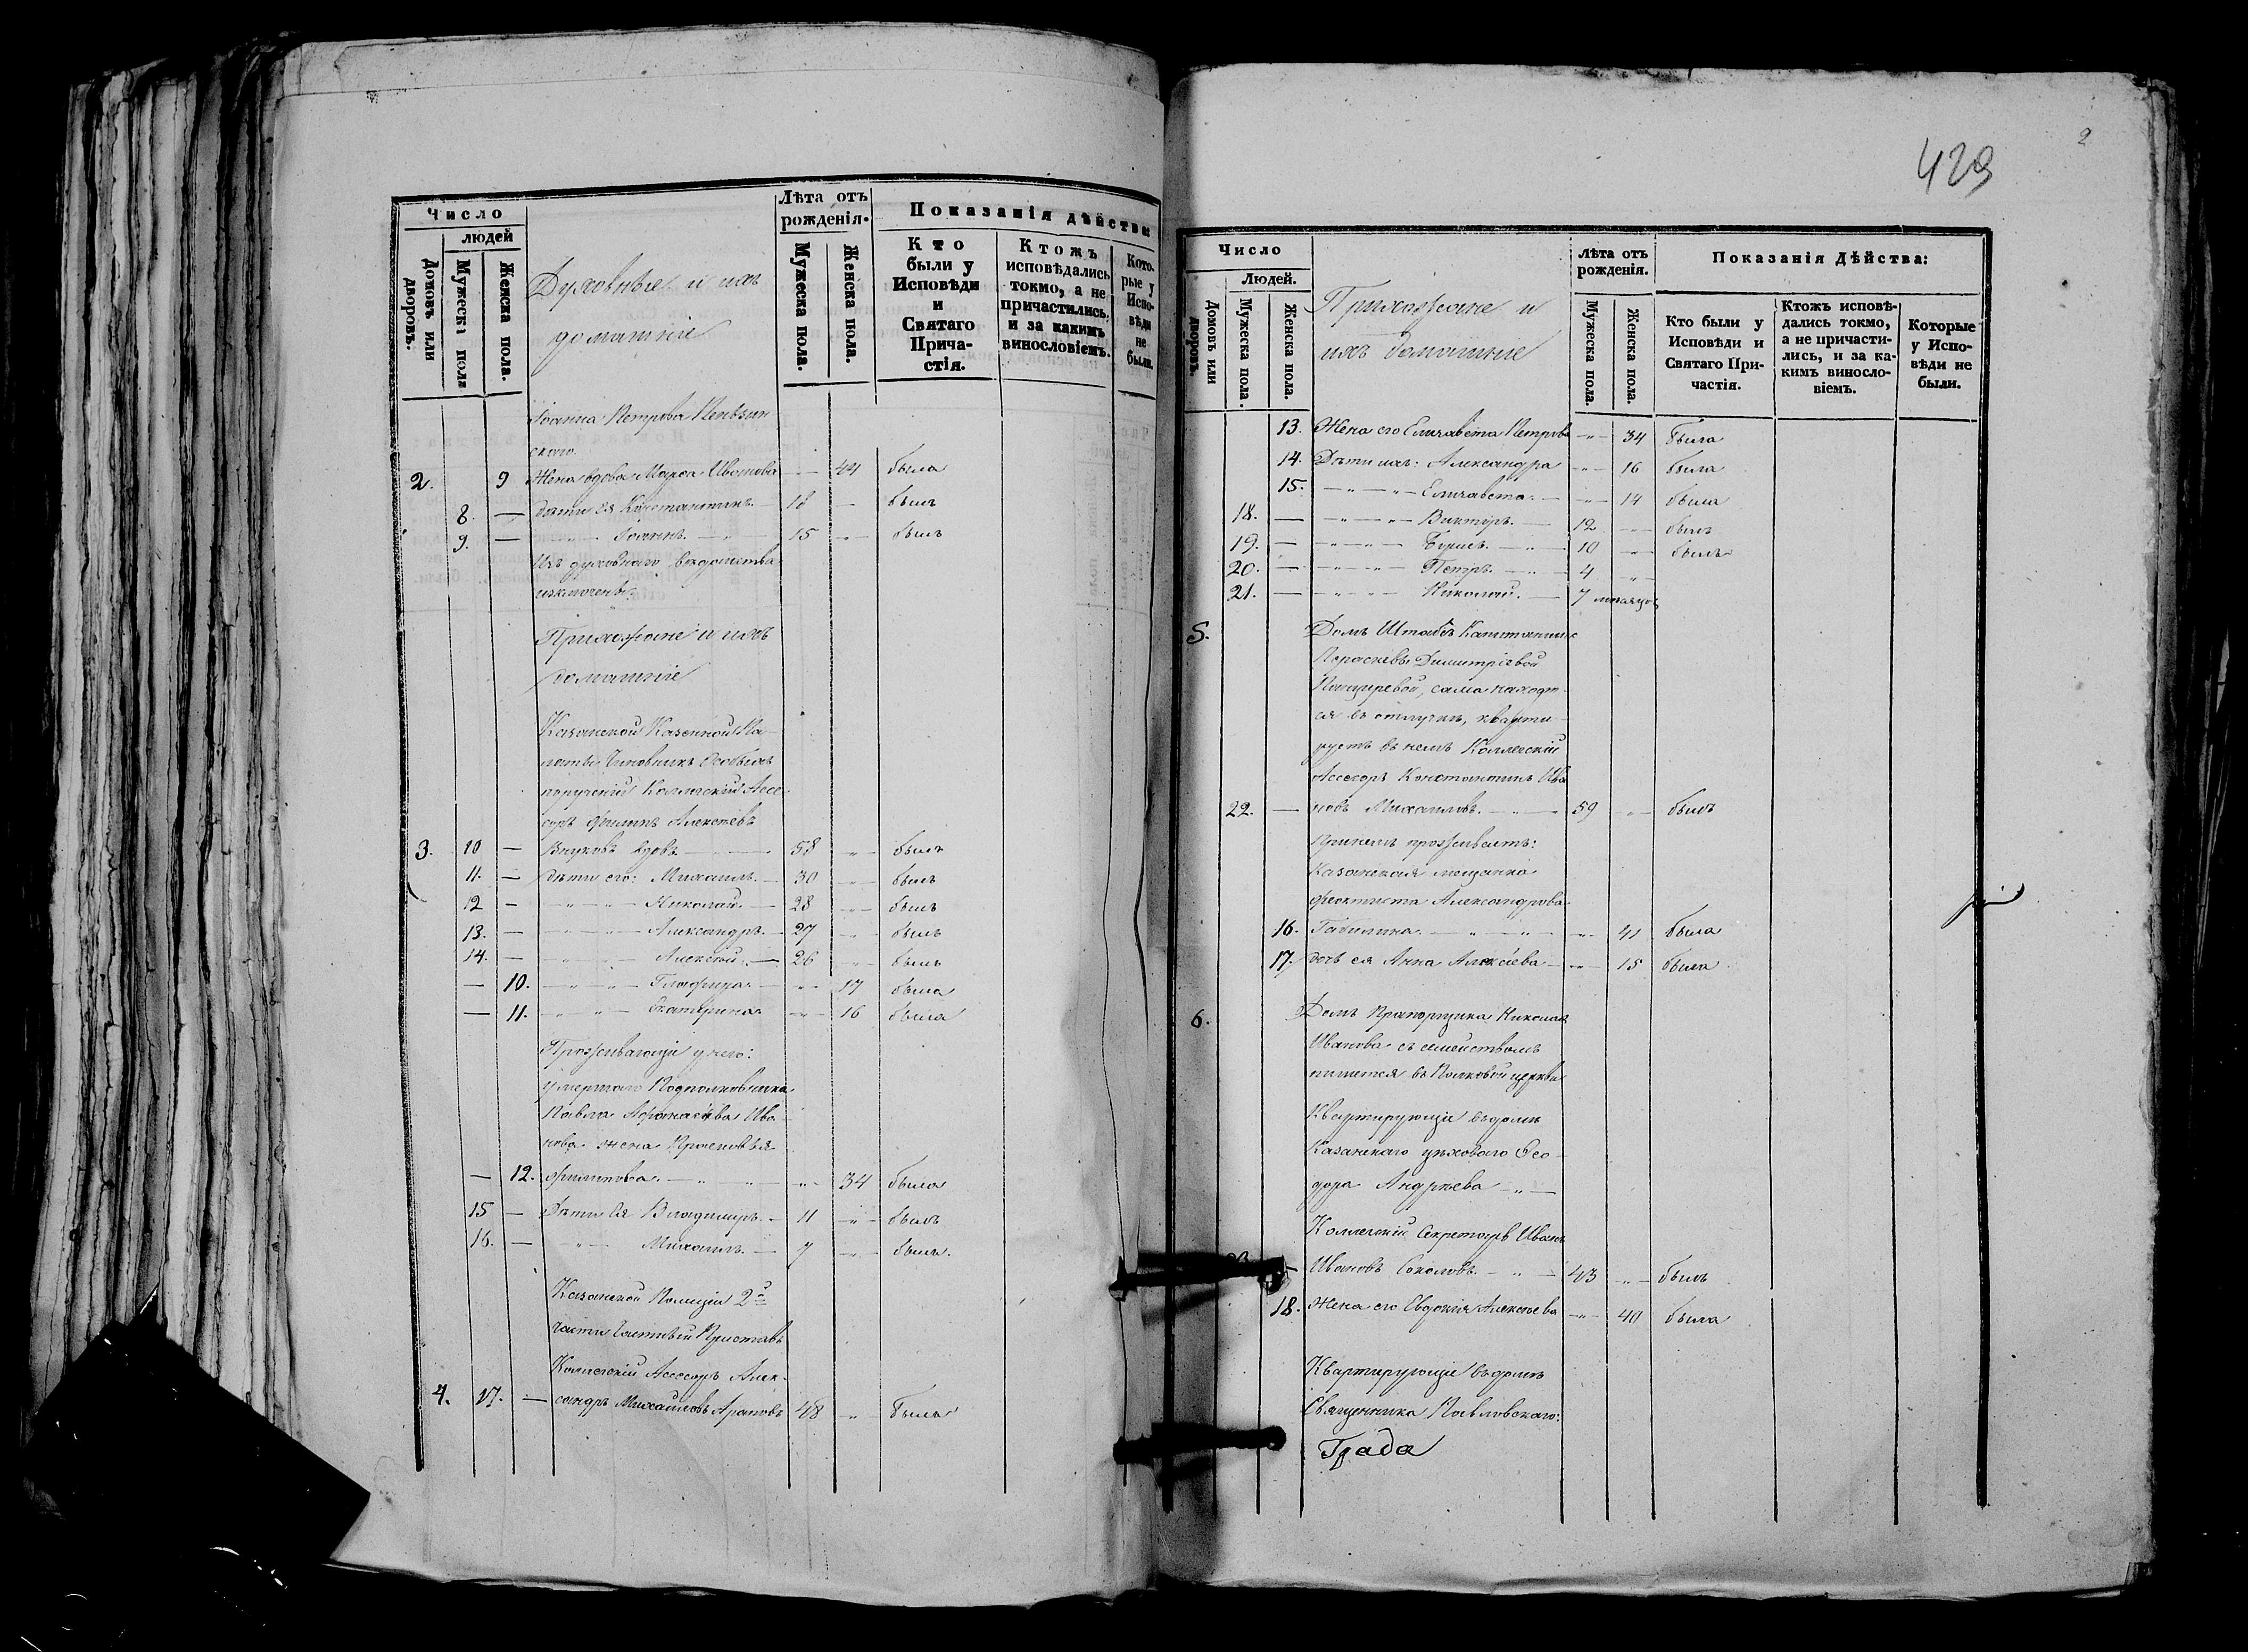 Число
людей
Домовъ или дворовъ.
Мужескі пола
Женска пола.
Духовные и ихъ
домашніе
Лѣта отъ
рожденія.
Мужеска пола.
Женска пола.
Показанія дѣйства:
Кто
были у
Исповѣди
и
Святаго
Прича-
стія.
Ктожъ
исповѣдались
токмо, а не
причастились,
и за какимъ
винословіемъ.
Кото-
рые у
Испо-
вѣди
не
были.
Іоанна Петрова
скаго.
2. 9 Жена вдова Марѳа Иванова 44 была
8. — дѣти ея Константинъ — 18 — былъ
9. — „ — Іоаннъ. — „ — 15 „ былъ
Изъ духовнаго вѣдомства
изключены.
Прихожане и ихъ
домашніе
Казанской Казенной Па-
латы Чиновникъ Особыхъ
порученій Коллежскій Ассе-
соръ Филипъ Алексѣевъ
3. 10 — Внуковъ вдовъ — 58 „ былъ
11. — дѣти его: Михаилъ. — 30 „ былъ
12 — „ — „ — Николай. — 28 „ былъ
13. — „ — „ — Александръ. — 27 „ былъ
14. — „ — „ — Алексѣй. — 26 „ былъ
— 10. — „ — „ — Глафира — „ 17 была
— 11. — „ — „ — Екатерина — „ 16 была
Проживающіе у него:
умершаго Подполковника
Павла Афанасьева Ива-
нова жена Прасковья
— 12. Филипова. — „ — „ 34 была
15 — Дѣти Ея Владимиръ. — 11 „ былъ
16. — „ — Михаилъ. — 7 „ былъ.
Казанской Полиціи 2й
части Частный Приставъ
Коллежскій Ассесоръ Алек-
4. 17. — сандръ Михайловъ Араповъ 48 „ былъ
429
2
Число
Людей.
Домовъ или дворовъ.
Мужеска пола.
Женска пола.
Прихожане и
ихъ домашніе
лѣта отъ
рожденія.
Мужеска пола.
Женска пола.
Показанія Дѣйства:
Кто были у
Исповѣди и
Святаго При-
частія.
Ктожъ исповѣ-
дались токмо,
а не причасти-
лись, и за ка-
кимъ винослo-
віемъ.
Которые
у Испо-
вѣди не
были.
13. Жена его Елизавета Петрова — „ — 34 Была
14. Дѣти ихъ: Александра — „ — 16 была
15. — „ — „ — Елизавета. — „ — 14 была
18. — „ — „ — Викторъ. — 12 „ былъ
19. — „ — „ — Борисъ. — „ — 10 „ былъ
20. — „ — „ — Петръ. — „ — 4 „
21. — „ — „ — Николай. — 7 мѣсяцовъ
5. Домъ Штабсъ Капитанши
Параскевы Димитріевой
сама находит-
ся въ отлучкѣ, кварти-
руетъ въ немъ Коллежскій
Ассесоръ Константинъ Ива-
22. — новъ Михайловъ. — „ — 59 „ былъ
При немъ проживаетъ:
Казанская мещанка
Феоктиста Александрова
16. — „ — „ 41 была
17. дочь ея Анна Алексіева — „ 15 была
6. Домъ Прапорщика Николая
Иванова съ семействомъ
пишется въ Полковой церкви
Квартирующіе въ домѣ
Казанскаго цеховаго Ѳео-
дора Андреева — „ —
Коллежскій Секретарь Иванъ
23. — Ивановъ Соколовъ. — „ — 43 „ былъ
18. Жена его Евдокія Алексѣева — „ — 40 была
Квартирующіе въ домѣ
Священника Павловскаго:
Града